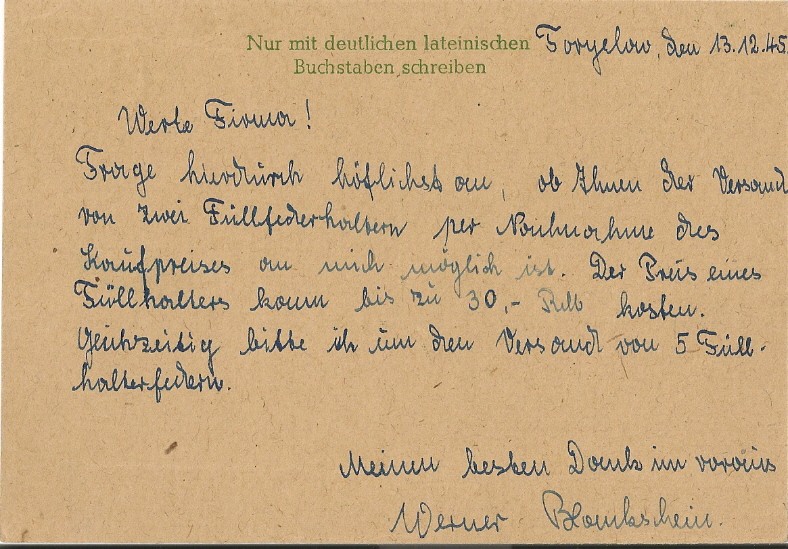 Nur mit deutlichen lateinischen
Buchstaben schreiben
Torgelow, den 13.12.45.
Werte Firma!
Frage hierdurch höflichst an, ob Ihnen der Versand
von zwei Füllfederhaltern per Nachnahme des
Kaufpreises an mich möglich ist. Der Preis eines
Füllhalters kann bis zu 30,- RM kosten.
Gleichzeitig bitte ich um den Versand von 5 Füll-
halterfedern.
Meinen besten Dank im voraus
Werner Blankschein.